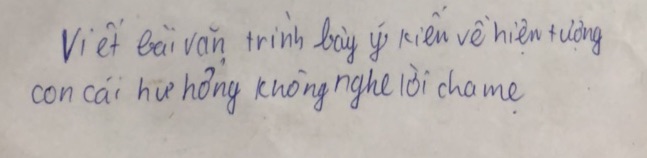 Viết bài văn trình bày ý kiến về hiện tượng
con cái hư hỏng không nghe lời cha mẹ